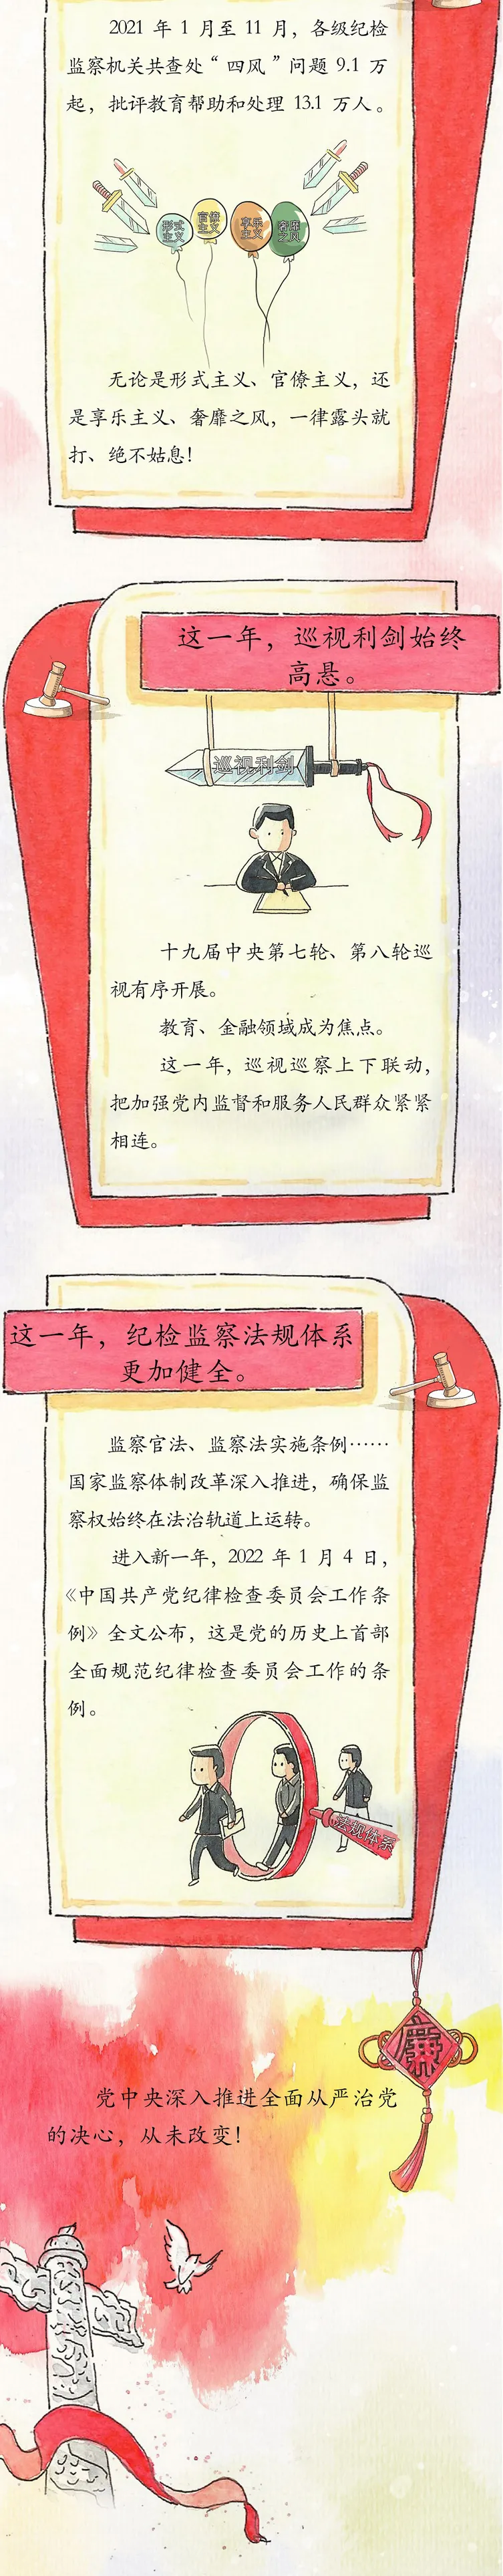 2021 年 1 月至 11 月，各级纪检
监察机关共查处“四风”问题 9.1 万
起，批评教育帮助和处理 13.1 万人。
形式
主义
官僚
主义
享乐
主义
奢靡
之风
无论是形式主义、官僚主义，还
是享乐主义、奢靡之风，一律露头就
打、绝不姑息！
这一年，巡视利剑始终
高悬。
巡视利剑
十九届中央第七轮、第八轮巡
视有序开展。
教育、金融领域成为焦点。
这一年，巡视巡察上下联动，
把加强党内监督和服务人民群众紧紧
相连。
这一年，纪检监察法规体系
更加健全。
监察官法、监察法实施条例……
国家监察体制改革深入推进，确保监
察权始终在法治轨道上运转。
进入新一年，2022 年 1 月 4 日，
《中国共产党纪律检查委员会工作条
例》全文公布，这是党的历史上首部
全面规范纪律检查委员会工作的条
例。
法规体系
廉
党中央深入推进全面从严治党
的决心，从未改变！